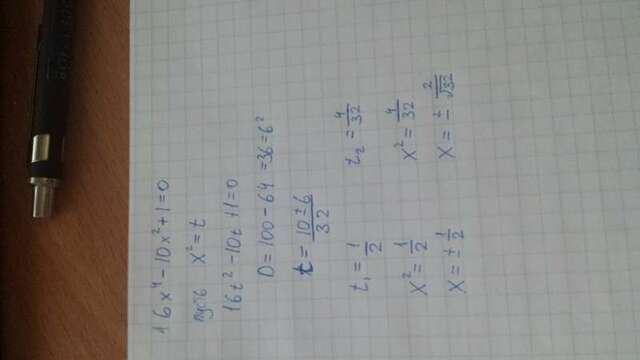 16x⁴-10x²+1=0
пусть x²=t
16t²-10t+1=0
D=100-64=36=6²
t=\frac{10±6}{32}
t₁=\frac{1}{2} t₂=\frac{4}{32}
x²=\frac{1}{2} x²=\frac{4}{32}
x=±\frac{1}{2} x=±\frac{2}{\sqrt{32}}